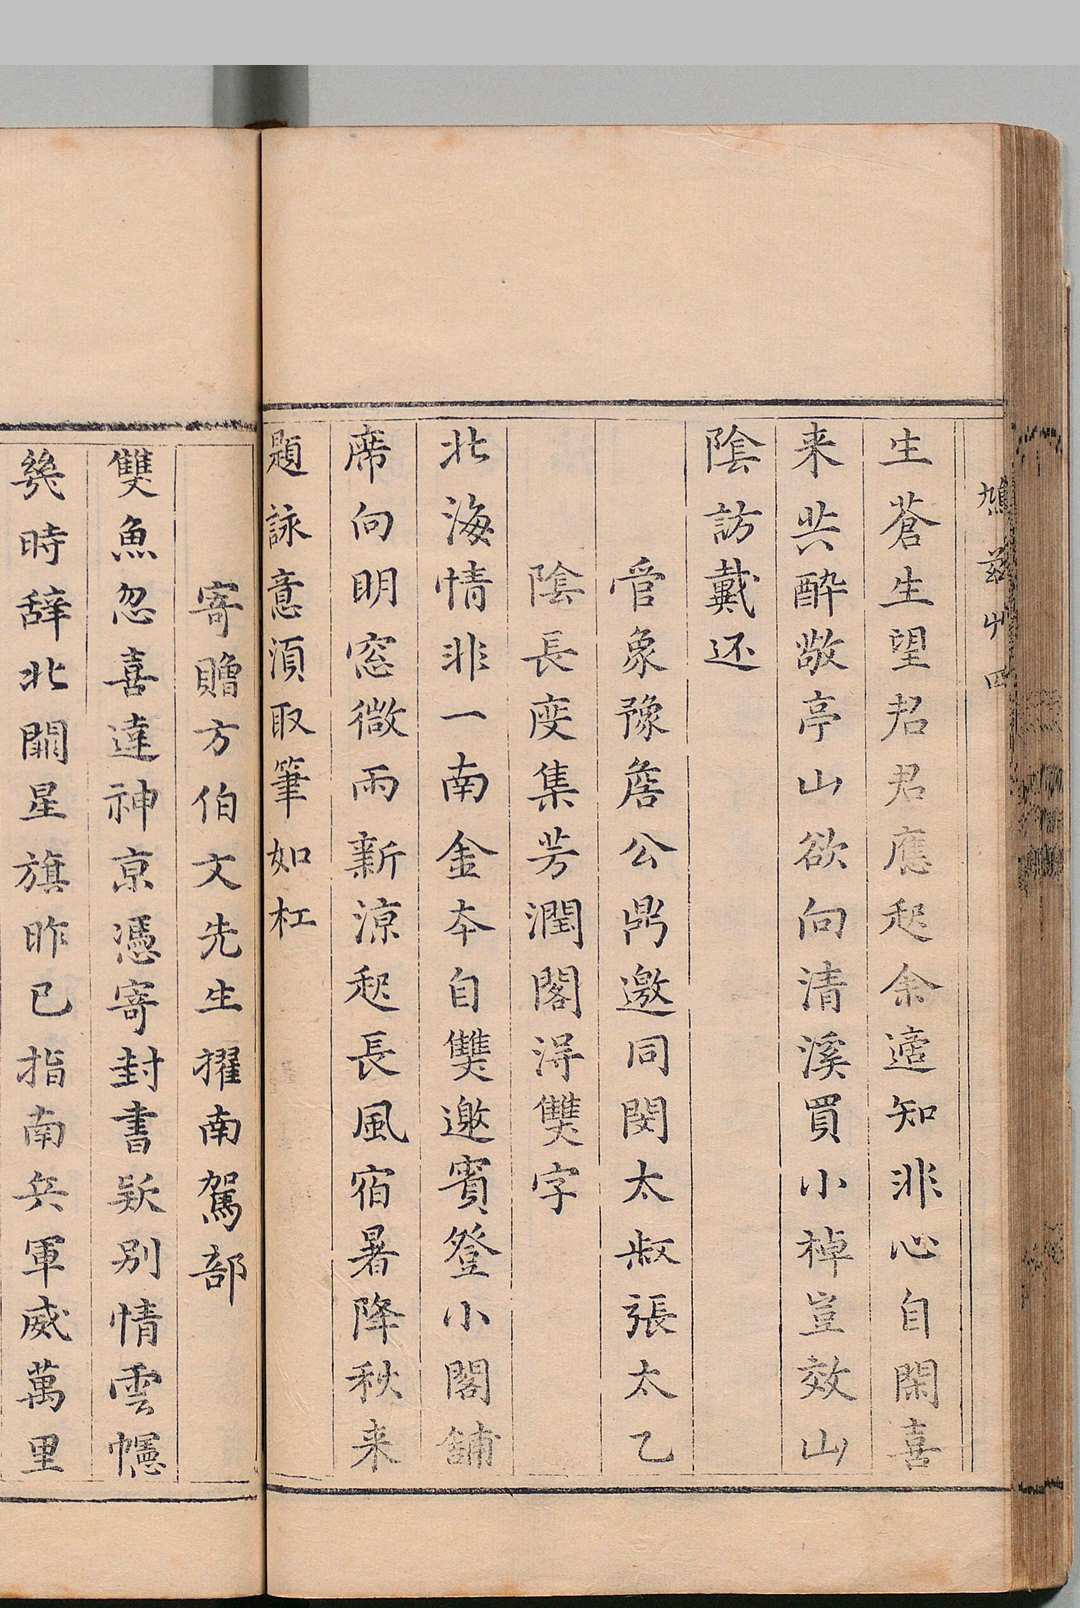 鳩茲艸四
生蒼生望君君應起余適知非心自閑喜
来共醉敬亭山欲向清溪買小棹豈效山
陰訪戴还
管象豫詹公鼎邀同閔太叔張太乙
陰長度集芳潤閣淂雙字
北海情非一南金夲自雙邀賓登小閣鋪
席向明窓微雨新涼起長風宿暑降秋来
題詠意湏取筆如杠
寄贈方伯文先生擢南駕部
雙魚忽喜達神京憑寄封書跃别情雲幰
幾時辞北闕星旗昨已指南兵軍威萬里